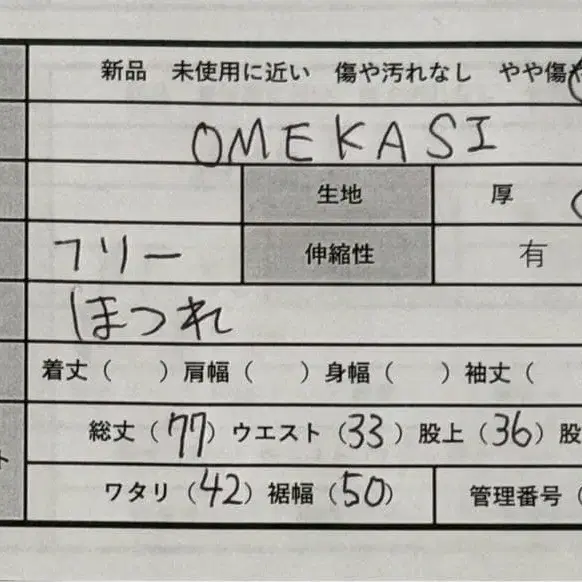 新品 未使用に近い 傷や汚れなし やや傷や
OMEKASI
生地 厚
フリー 伸縮性 有
ほつれ
着丈( )肩幅( )身幅( )袖丈(
総丈(77)ウエスト(33)股上(36)股
ト
ワタリ(42)裾幅(50) 管理番号(